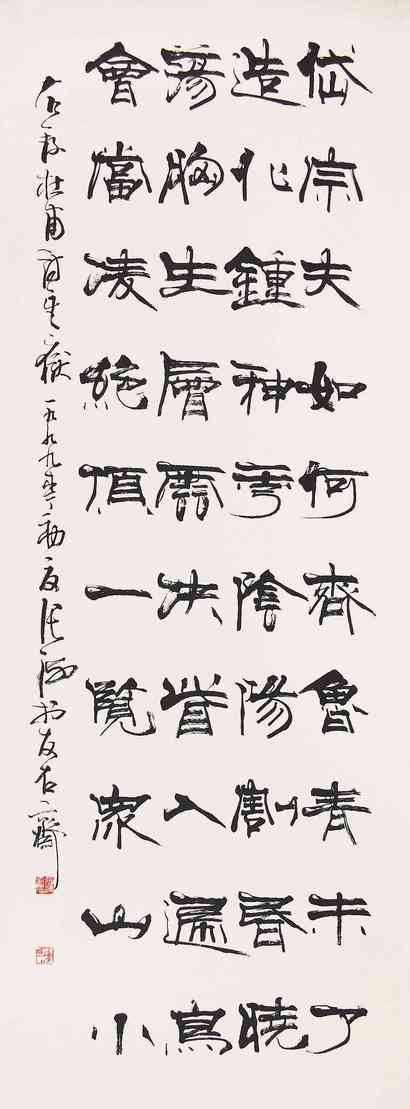 岱宗夫如何齊魯青未了
造化鍾神秀陰陽割昏曉
蕩胸生層雲決眥入歸鳥
會當凌絕頂一覽眾山小
右錄杜甫詩望嶽 一九九九年初夏張海書